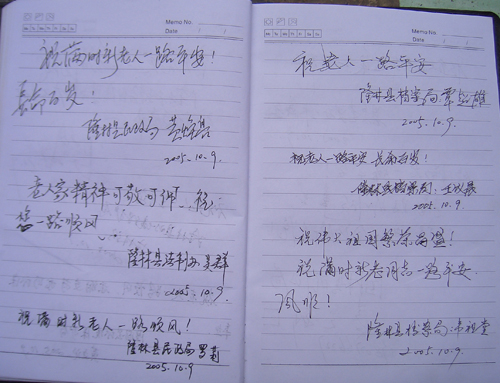 Memo No.
Date / /
祝满时新老人一路平安!
长命百发!
隆林县民政局
2005.10.9.
老人家精神可敬可佩 祝
您一路顺风
隆林县法制办 吴群
2005.10.9.
祝满时新老人一路顺风!
隆林县民政局 罗莉
2005.10.9
Memo No.
Date / /
祝老人一路平安
隆林县档案局
2005.10.9
祝老人一路平安 长命百发!
2005.10.9
祝伟大祖国繁荣昌盛!
祝满时新老同志一路平安
风顺!
隆林县档案局:韦祖堂
2005.10.9.